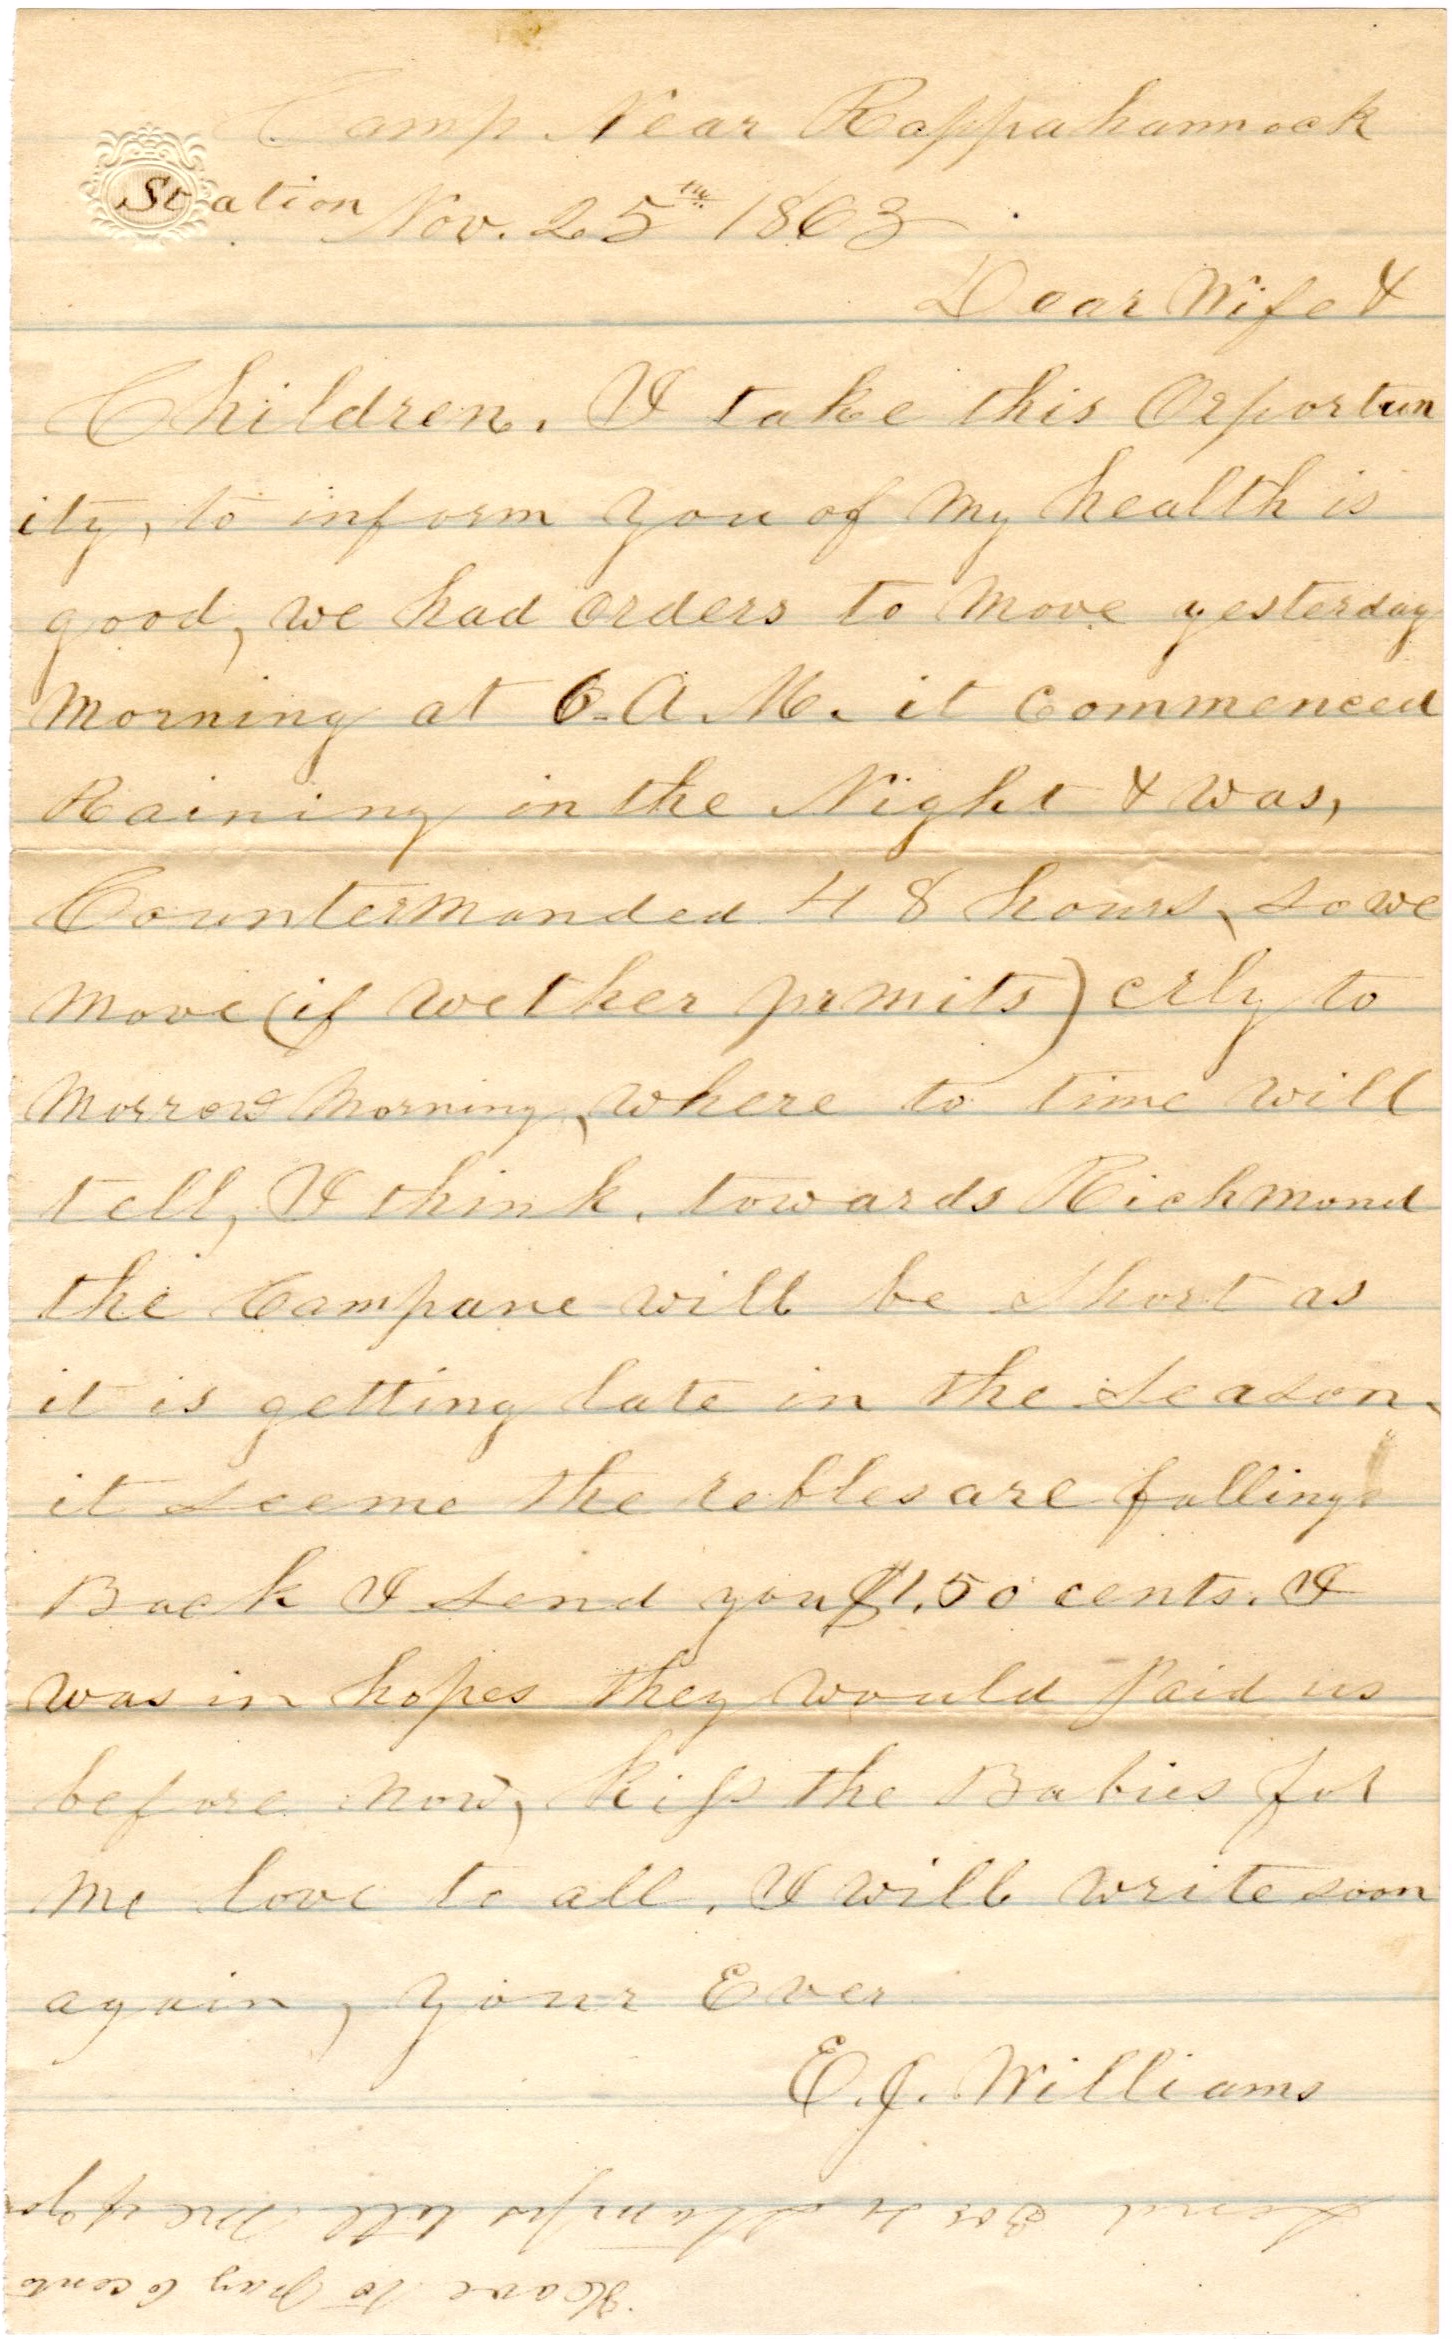 Camp Near Rappahannock
Station Nov. 25th 1863.
Dear Wife &
Children. I take this Orportun
ity, to inform you of my health is
good, we had orders to move yesterday
morning at 6. A. M. it commenced
Raining in the Night & was,
Countermanded 48 hours, so we
move (if wether prmits) erly to
morrow morning, where to time will
tell, I think, towards Richmond
the Campane will be short as
it is getting late in the season,
it seeme the rebles are falling
Back I send you $1,50 cents. I
was in hopes they would Paid us
before now, kiss the Babies for
me love to all, I will write soon
again, your Ever
E. J. Williams
Send 3 or 4 stamps tell me if you
Have to Pay 6 cents